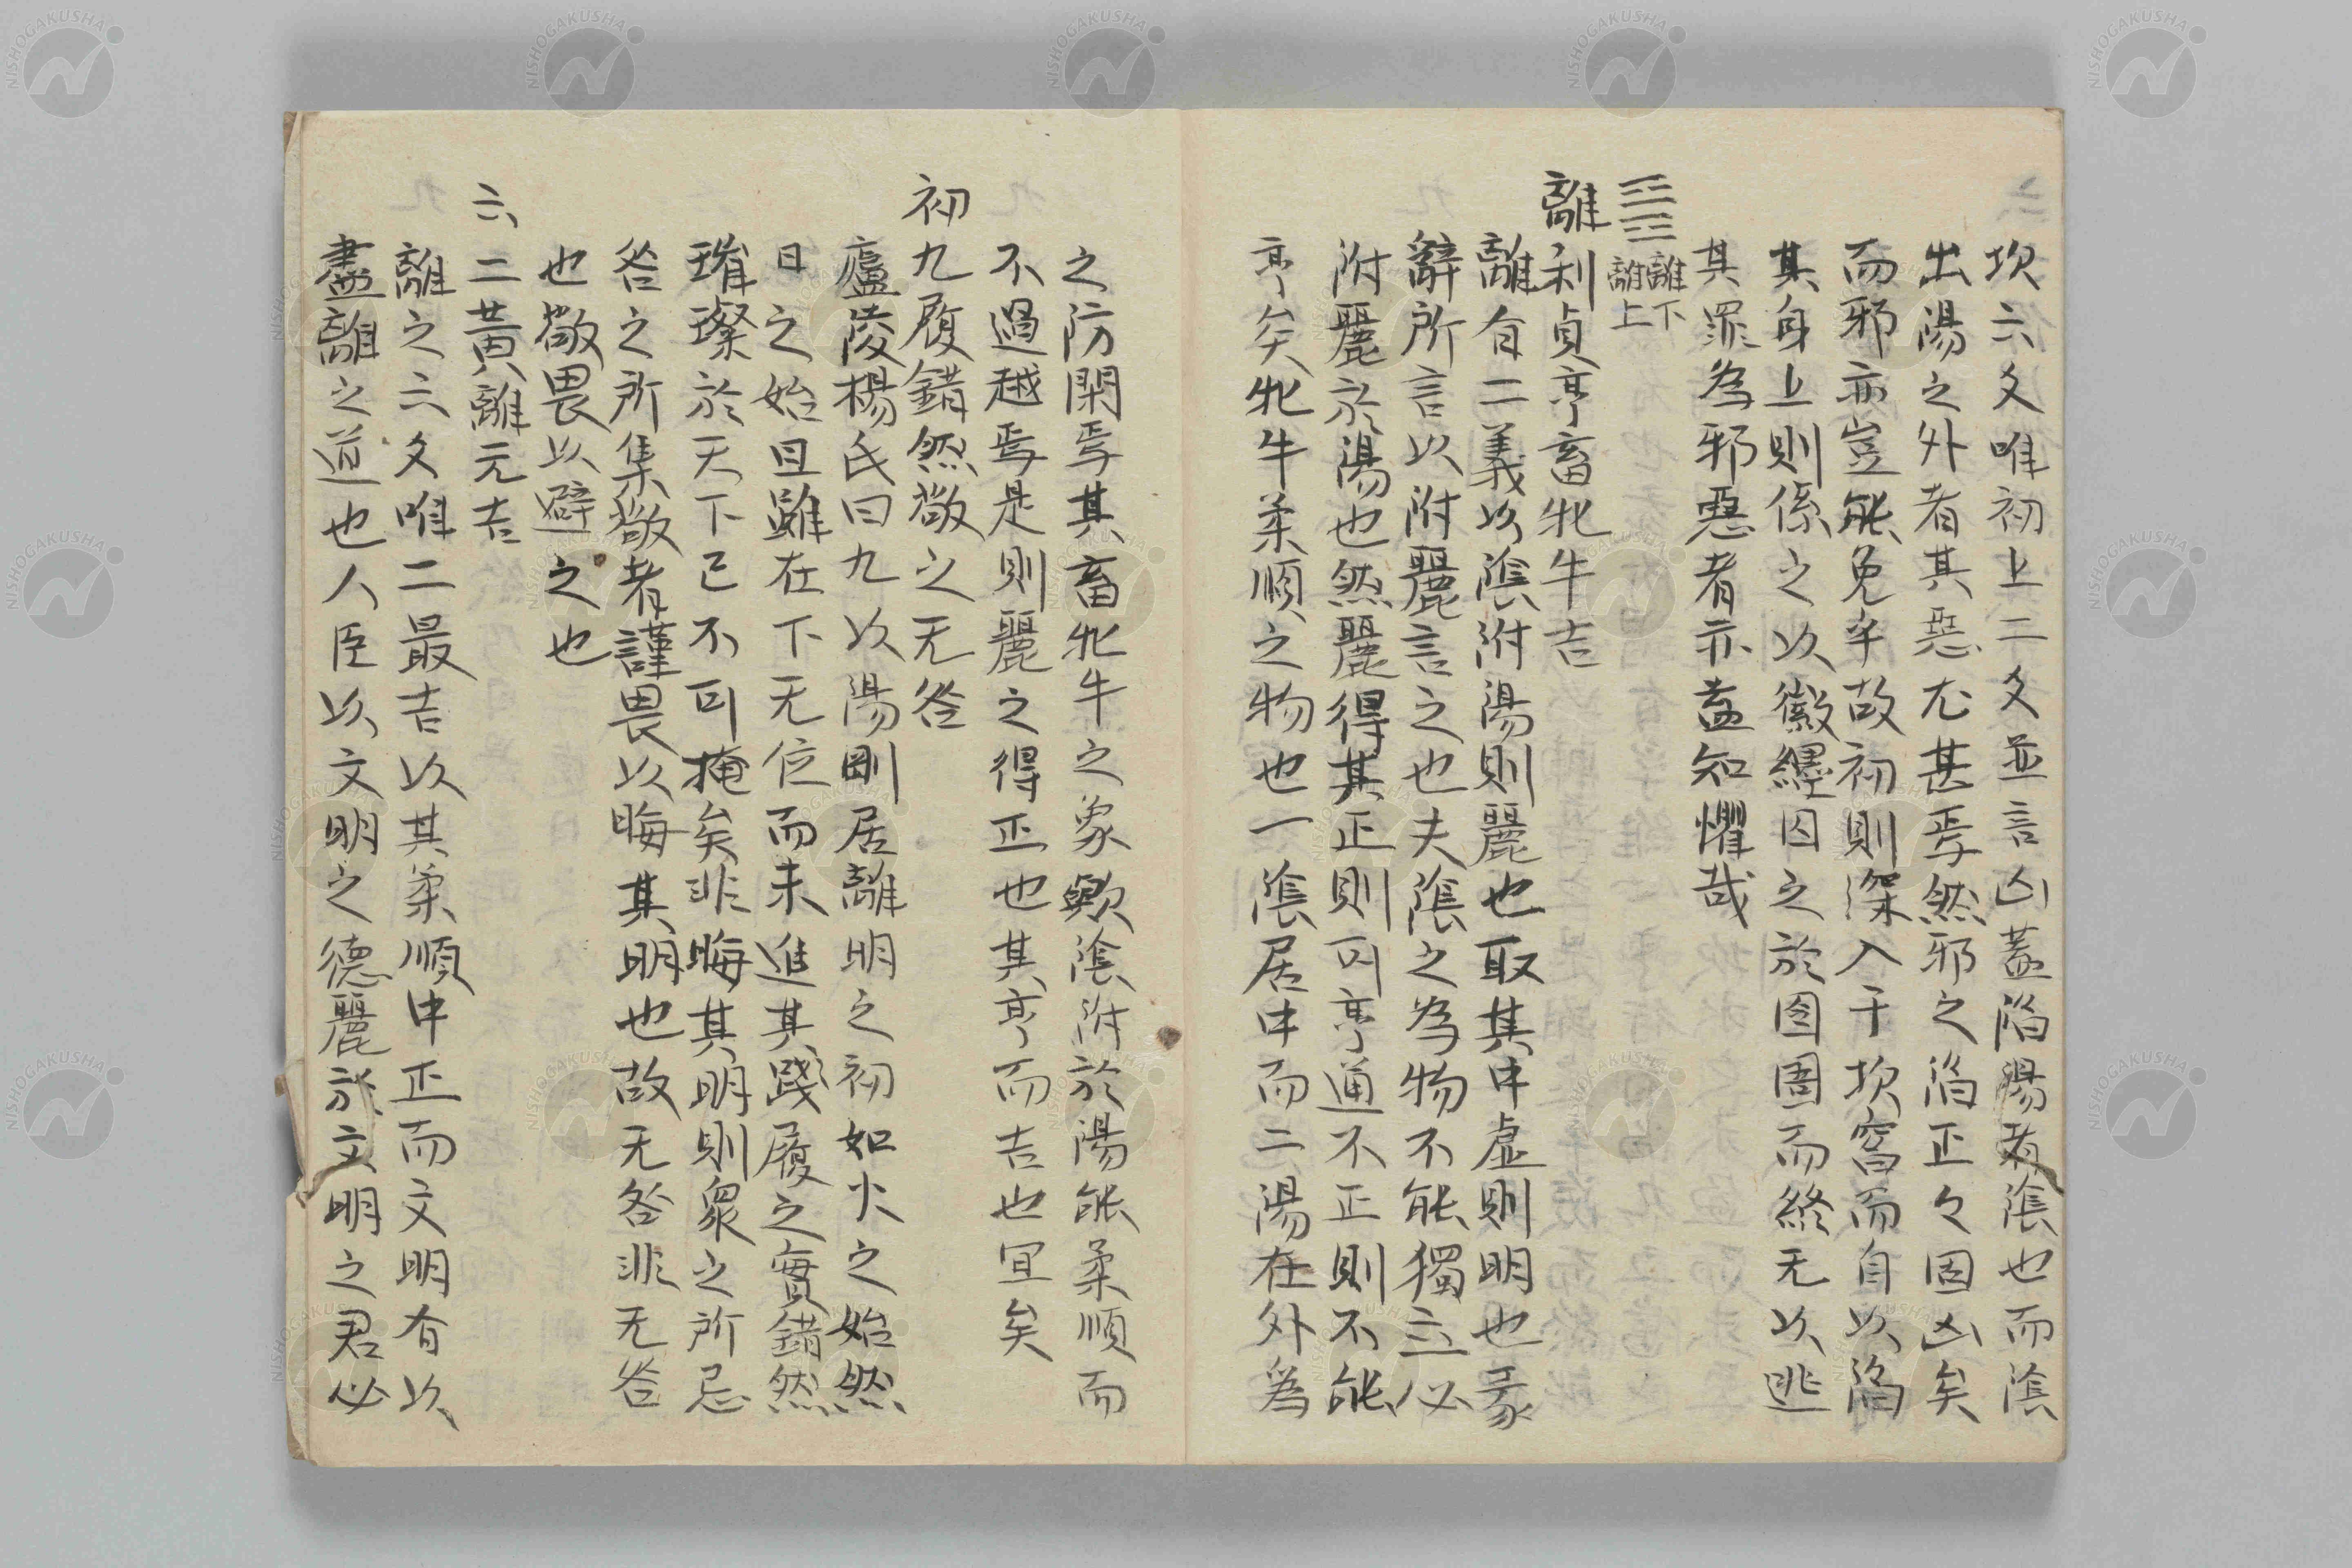 坎六爻唯初上二爻並言凶蓋陷陽者陰也而陰
出陽之外者其惡尤甚焉然邪之陷正々固凶矣
而邪亦豈能免乎故初則深入于坎窞而自以陷
其身上則係之以徽纆囚之於圄圄而終无以逃
其罪為邪惡者亦盍知懼哉
離下
離上
離利貞亨畜牝牛吉
離有二義以陰附陽則麗也取其中虛則明也彖
辭所言以附麗言之也夫陰之為物不能獨立必
附麗於陽也然麗得其正則可亨通不正則不能
亨矣牝牛柔順之物也一陰居中而二陽在外爲
之防閑焉其畜牝牛之象歟陰附於陽能柔順而
不過越焉是則麗之得正也其亨而吉也宜矣
初九履錯然敬之无咎
廬陵楊氏曰九以陽剛居離明之初如火之始然
日之始旦雖在下无位而未進其踐履之實錯然
璀璨於天下已不可掩矣非晦其明則衆之所忌
咎之所集敬者謹畏以晦其明也故无咎非无咎
也敬畏以避之也
六二黃離元吉
離之六爻唯二最吉以其柔順中正而文明有以
盡離之道也人臣以文明之德麗於文明之君必
NISHOGAKUSHA